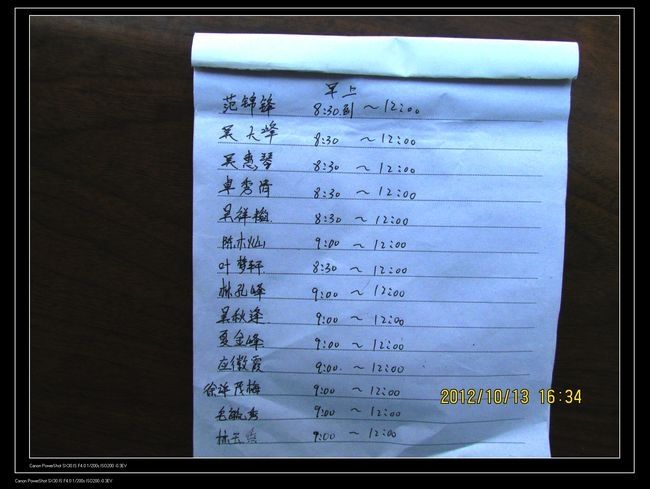 早上
范锦锋 8:30到 ~ 12:00
吴大峰 8:30 ~ 12:00
吴惠琴 8:30 ~ 12:00
卓秀清 8:30 ~ 12:00
吴祥梅 8:30 ~ 12:00
陈木灿 9:00 ~ 12:00
叶梦轩 8:30 ~ 12:00
林孔峰 9:00 ~ 12:00
吴秋逢 9:00 ~ 12:00
夏金峰 9:00 ~ 12:00
应微霞 9:00 ~ 12:00
徐洋茂梅 9:00 ~ 12:00
毛敏秀 9:00 ~ 12:00
林 9:00 ~ 12:00
2012/10/13 16:34
Canon PowerShot SX30 IS F4.0 1/200s ISO200 -0.3EV
Canon PowerShot SX30 IS F4.0 1/200s ISO200 -0.3EV